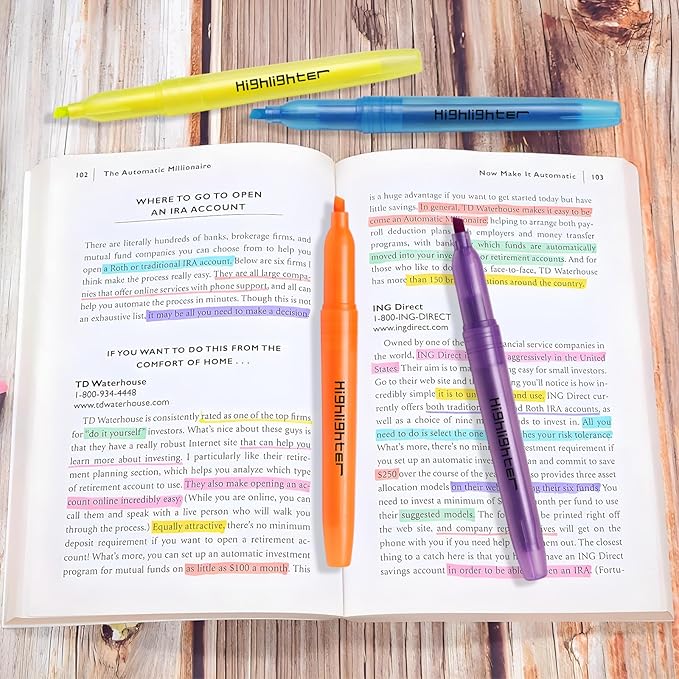 Highlighter
Highlighter
102 The Automatic Millionaire
WHERE TO GO TO OPEN
AN IRA ACCOUNT
There are literally hundreds of banks, brokerage firms, and
mutual fund companies you can choose from to help you
open a Roth or traditional IRA account. Below are six firms I
think make the process really easy. They are all large compa-
nies that offer online services with phone support, and all can
help you automate the process in minutes. Though this is not
an exhaustive list, it may be all you need to make a decision
IF YOU WANT TO DO THIS FROM THE
COMFORT OF HOME . . .
TD Waterhouse
1-800-934-4448
www.tdwaterhouse.com
TD Waterhouse is consistently rated as one of the top firms
for "do it yourself" investors. What's nice about these guys is
that they have a really robust Internet site that can help you
learn more about investing. I particularly like their retire-
ment planning section, which helps you analyze which type
of retirement account to use. They also make opening an ac-
count online incredibly easy. (While you are online, you can
call them and speak with a live person who will walk you
through the process.) Equally attractive, there's no minimum
deposit requirement if you want to open a retirement ac-
count! What's more, you can set up an automatic investment
program for mutual funds on as little as $100 a month. This
Highlighter
Now Make It Automatic 103
is a huge advantage if you want to get started today but have
little savings. In general, TD Waterhouse makes it easy to be-
come an Automatic Millionaire, helping to arrange both pay-
roll deduction plans employers and money transfer
programs, with which funds are automatically
moved into your or retirement accounts. And for
those who like to do face-to-face, TD Waterhouse
has more than 150 around the country.
ING Direct
1-800-ING-DIRECT
www.ingdirect.com
Owned by one of the financial service companies in
the world, ING Direct aggressively in the United
States. Their aim is to make easy for small investors.
Go to their web site and the you'll notice is how in-
credibly simple it is to and use. ING Direct cur-
rently offers both traditional Roth IRA accounts, as
well as a choice of nine to invest in. All you
need to do is select the one matches your risk tolerance.
What's more, there's no investment requirement if
you set up an automatic and commit to save
$250 over the course of the also provides three asset
allocation models on their web using their six funds. You
need to invest a minimum of month per fund to use
their suggested models. The be printed right off
the web site, and company will get on the
phone with you if you need help them out. The closest
thing to a catch here is that you have an ING Direct
savings account in order to be able open an IRA. (Fortu-
Highlighter